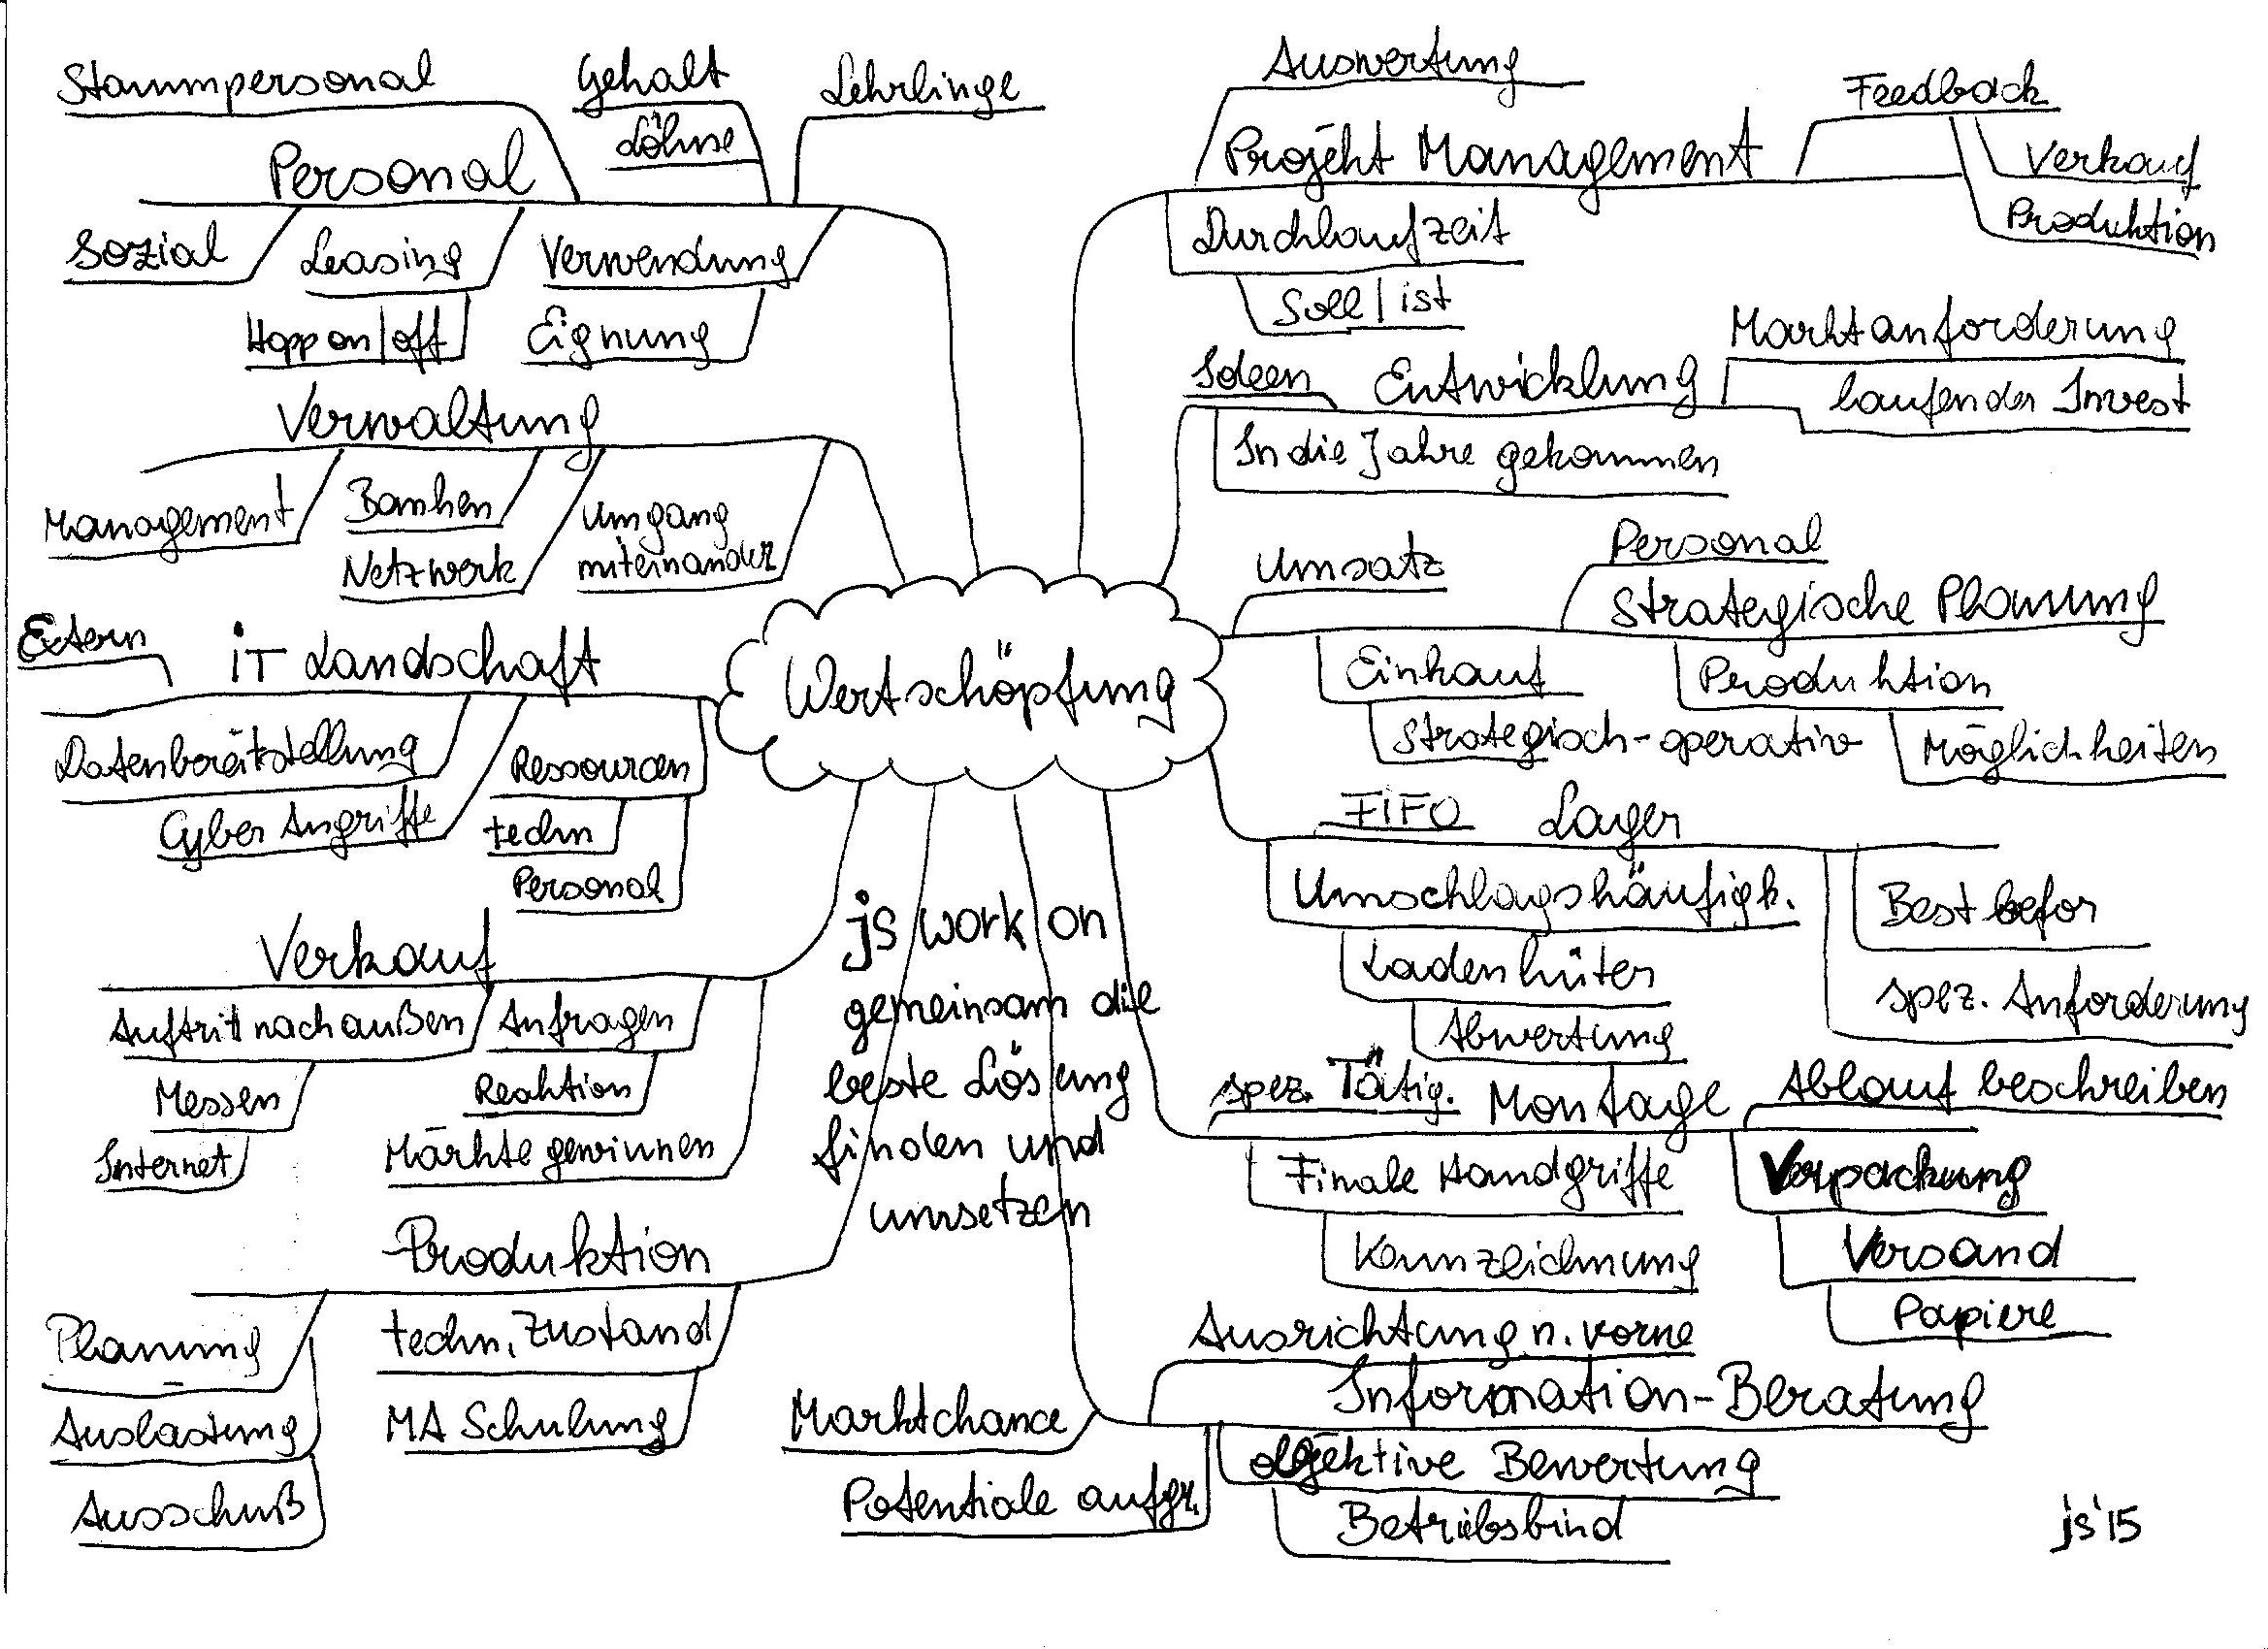 Stammpersonal
Gehalt
Löhne
Lehrlinge
Personal
Sozial
Leasing
Verwendung
Hopp on/off
Eignung
Verwaltung
Management
Banken
Netzwerk
Umgang
miteinander
Extern
iT Landschaft
Datenbereitstellung
Cyber Angriffe
Ressourcen
techn
Personal
Verkauf
Auftrit nach außen
Anfragen
Messen
Reaktion
Internet
Märkte gewinnen
Produktion
Planung
techn. Zustand
Auslastung
MA Schulung
Ausschuß
Wertschöpfung
js work on
gemeinsam die
beste Lösung
finden und
umsetzen
Auswertung
Feedback
Projekt Management
Verkauf
Produktion
Durchlaufzeit
Soll/ist
Marktanforderung
Ideen
Entwicklung
laufender Invest
In die Jahre gekommen
Umsatz
Personal
Strategische Planung
Einkauf
Produktion
Strategisch-operativ
Möglichkeiten
FiFO
Lager
Umschlagshäufigk.
Best befor
Ladenhüter
spez. Anforderung
Abwertung
spez. Tätig.
Montage
Ablauf beschreiben
Finale Handgriffe
Verpackung
Kennzeichnung
Versand
Papiere
Ausrichtung n. vorne
Information-Beratung
Marktchance
objektive Bewertung
Potentiale aufgr.
Betriebsbind
js'15